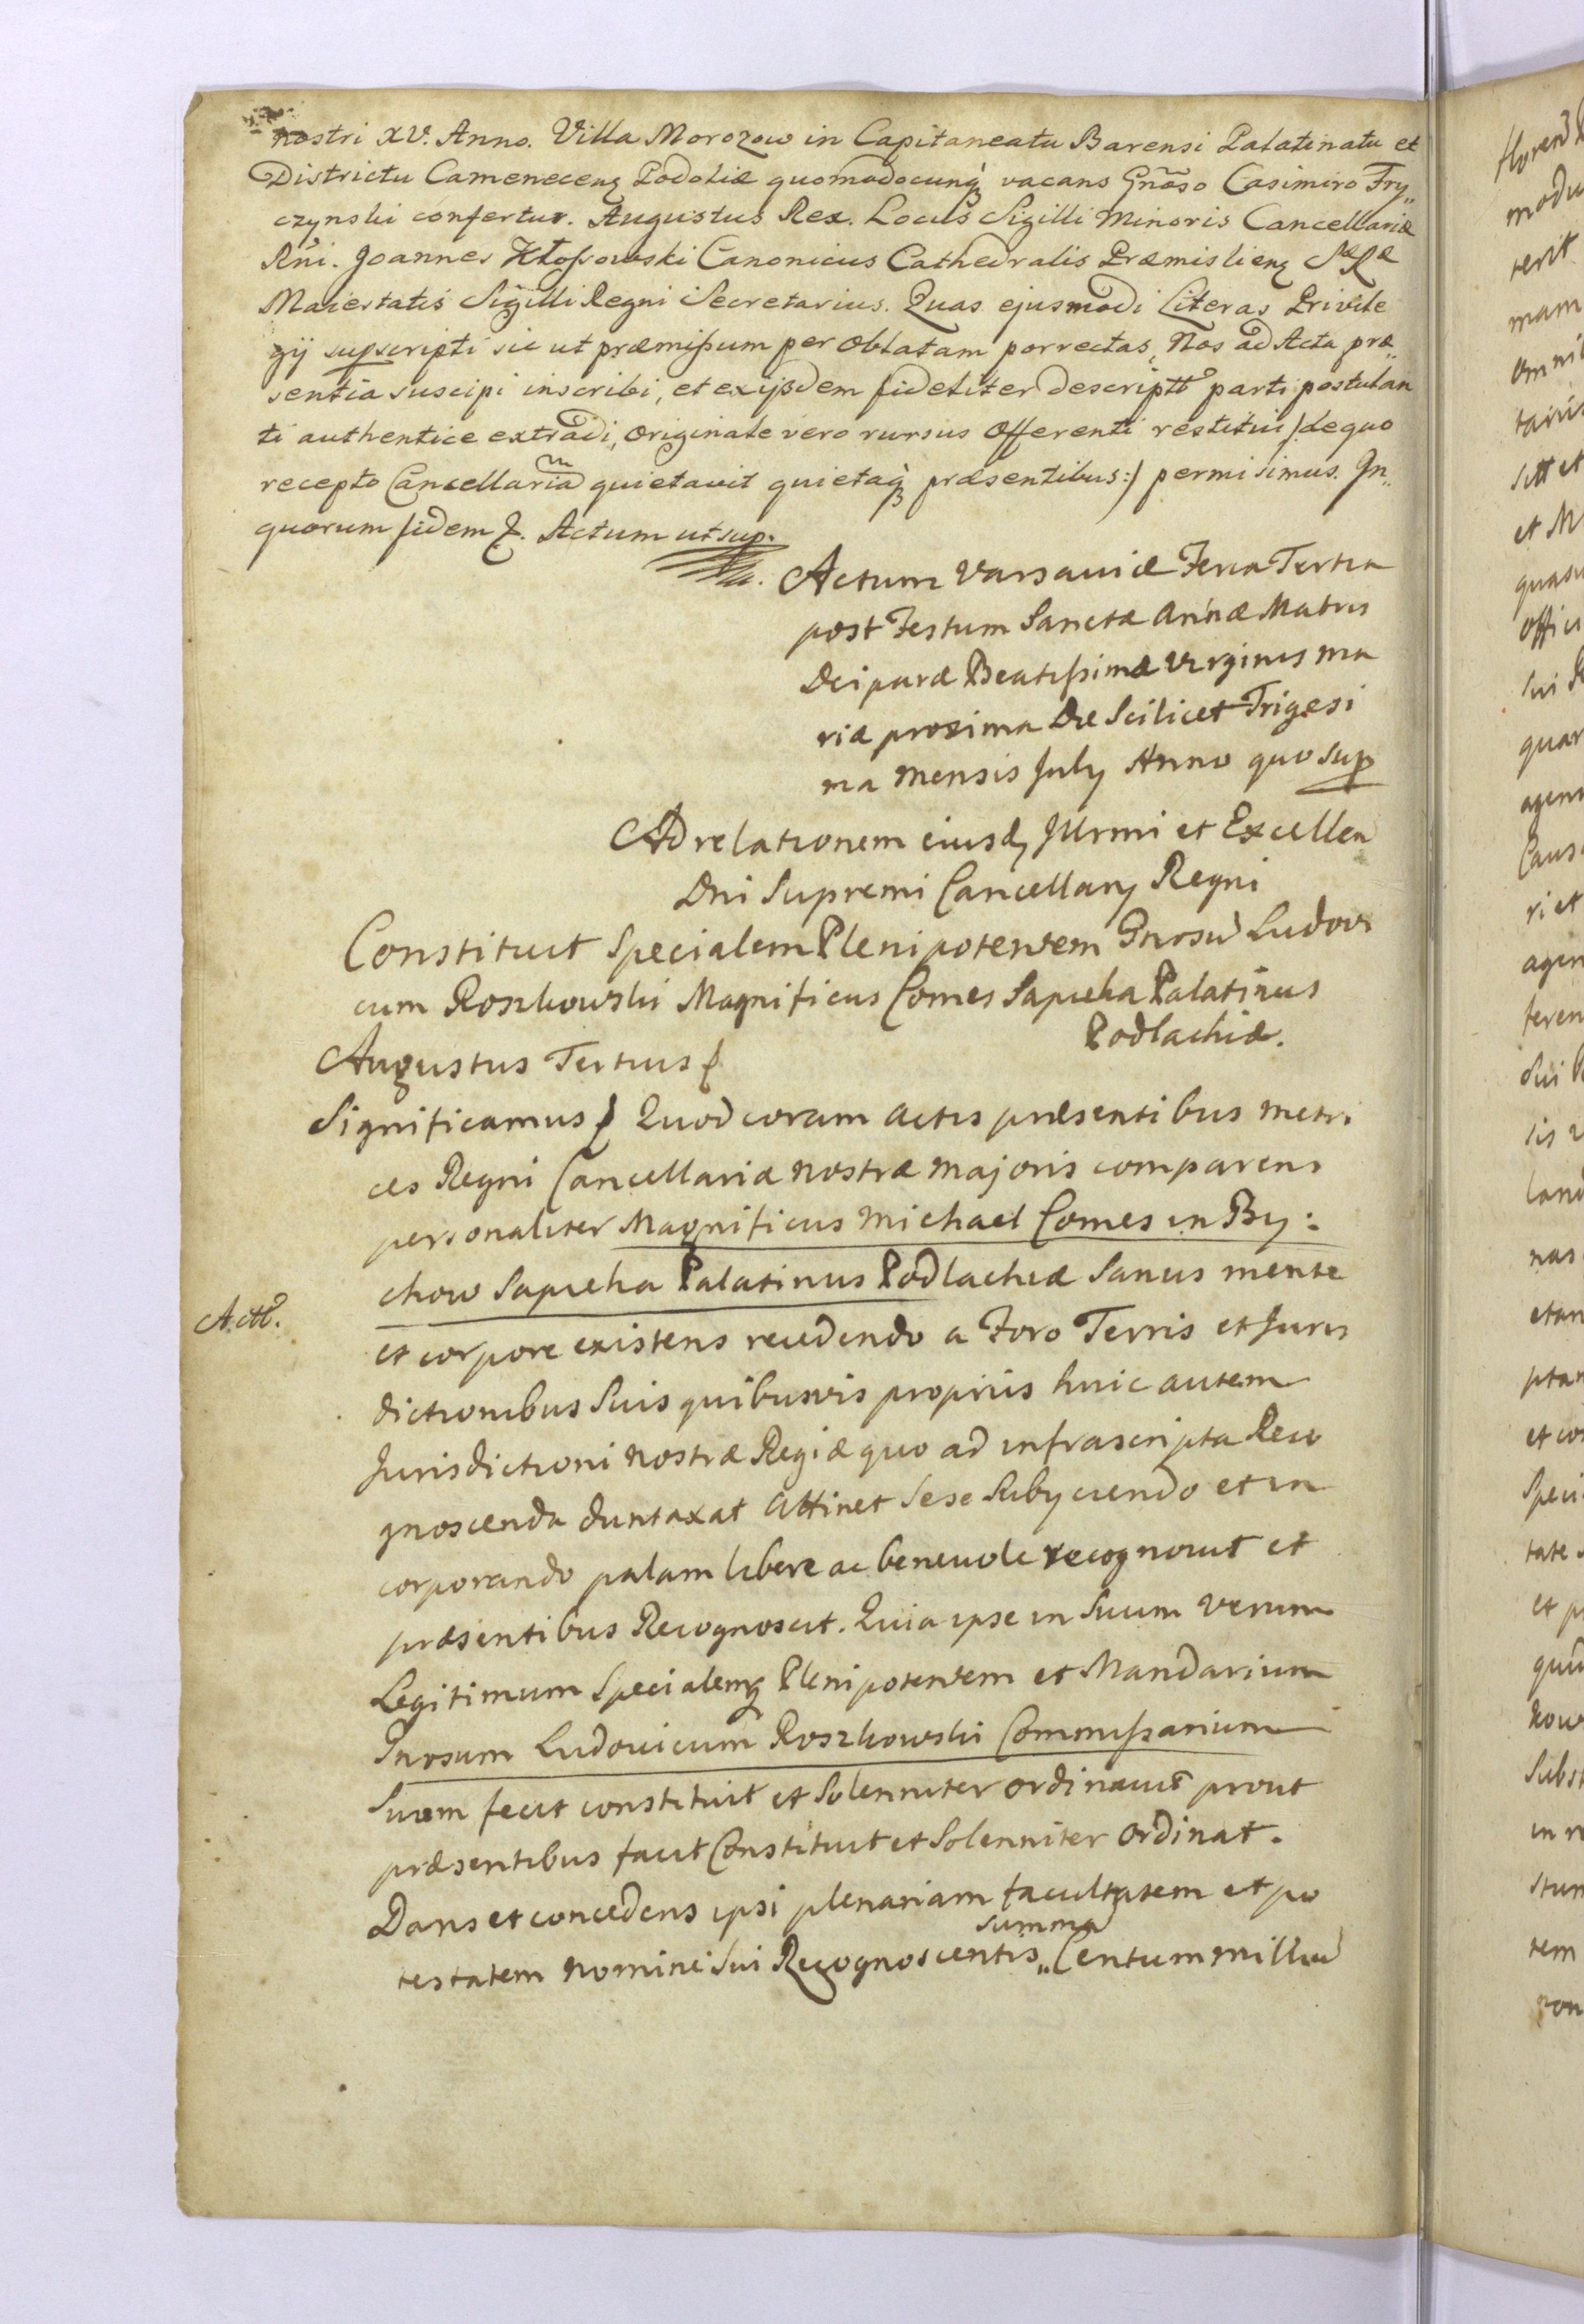 nostri XV. Anno. Villa Morozow in Capitaneatu Barensi Palatinatu et
Districtu Camenecenʒ Podoliæ quomodocunqʒ vacans Gnãso Casimiro Fry„
czynski confertur. Augustus Rex. Locus Sigilli Minoris Cancellariæ
Rñi. Joannes Kłossowski Canonicus Cathedralis Præmislienʒ Sæ Ræ
Maiestatis Sigilli Regni Secretarius. Quas ejusmodi Literas Privile
gij supscripti sic ut præmissum per oblatam porrectas, Nos ad Acta præ„
sentia suscipi inscribi, et ex ijsdem fideliter descriptt° parti postulan
ti authentice extradi, originale vero rursus offerenti restitui /: de quo
recepto Cancellariã quietavit quietaqʒ præsentibus :/ permisimus. In„
quorum fidem &. Actum ut sup.
Actum Varsaviæ Feria Tertia
post Festum Sanctæ Annæ Matris
Deiparæ Beatissimæ Virginis Ma
riæ proxima Die Scilicet Trigesi
ma Mensis July Anno quo sup
Ad relationem eiusdʒ Illrmi et Excellen
Dni Supremi Cancellarij Regni
Constituit Specialem Plenipotentem Gnosũ Ludovi
cum Roszkowski Magnificus Comes Sapieha Palatinus
Podlachiæ.
Augustus Tertius &
Significamus & Quod coram actis præsentibus Metri
ces Regni Cancellariæ nostræ majoris comparens
personaliter Magnificus Michael Comes in By:
chow Sapieha Palatinus Podlachiæ Sanus mente
A. ctt°.
et corpore existens recedendo a Foro Terris et Juris
dictionibus Suis quibusvis propriis huic autem
Jurisdictioni nostræ Regiæ quo ad infrascripta Reco
gnoscenda duntaxat attinet Sese Subyciendo et in
corporando palam libere ac benevole recognovit et
præsentibus Recognoscit. Quia ipse in Suum Verum
Legitimum Specialemqʒ Plenipotentem et Mandarium
Gnosum Ludovicum Roszkowski Commissarium
Suum fecit constituit et Solenniter ordinavit prout
præsentibus facit Constituit et Solenniter Ordinat.
Dans et concedens ipsi plenariam facultatem et po
testatem nomine Sui Recognoscentis „ summã Centum milliũ